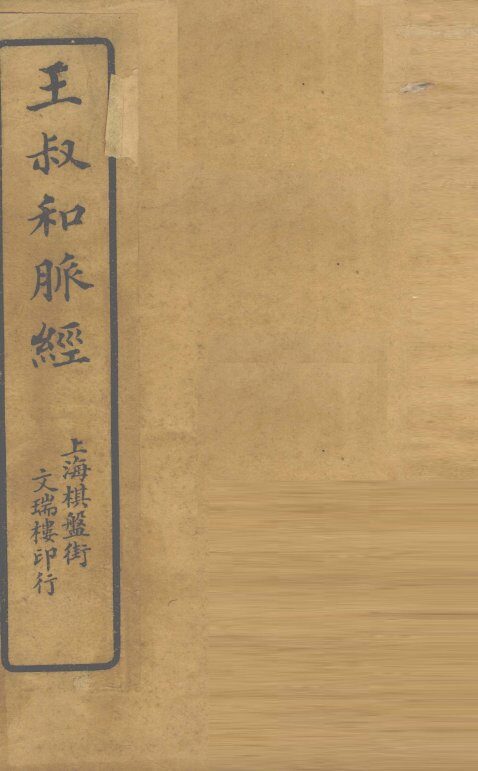 王叔和脈經
上海棋盤街
文瑞樓印行